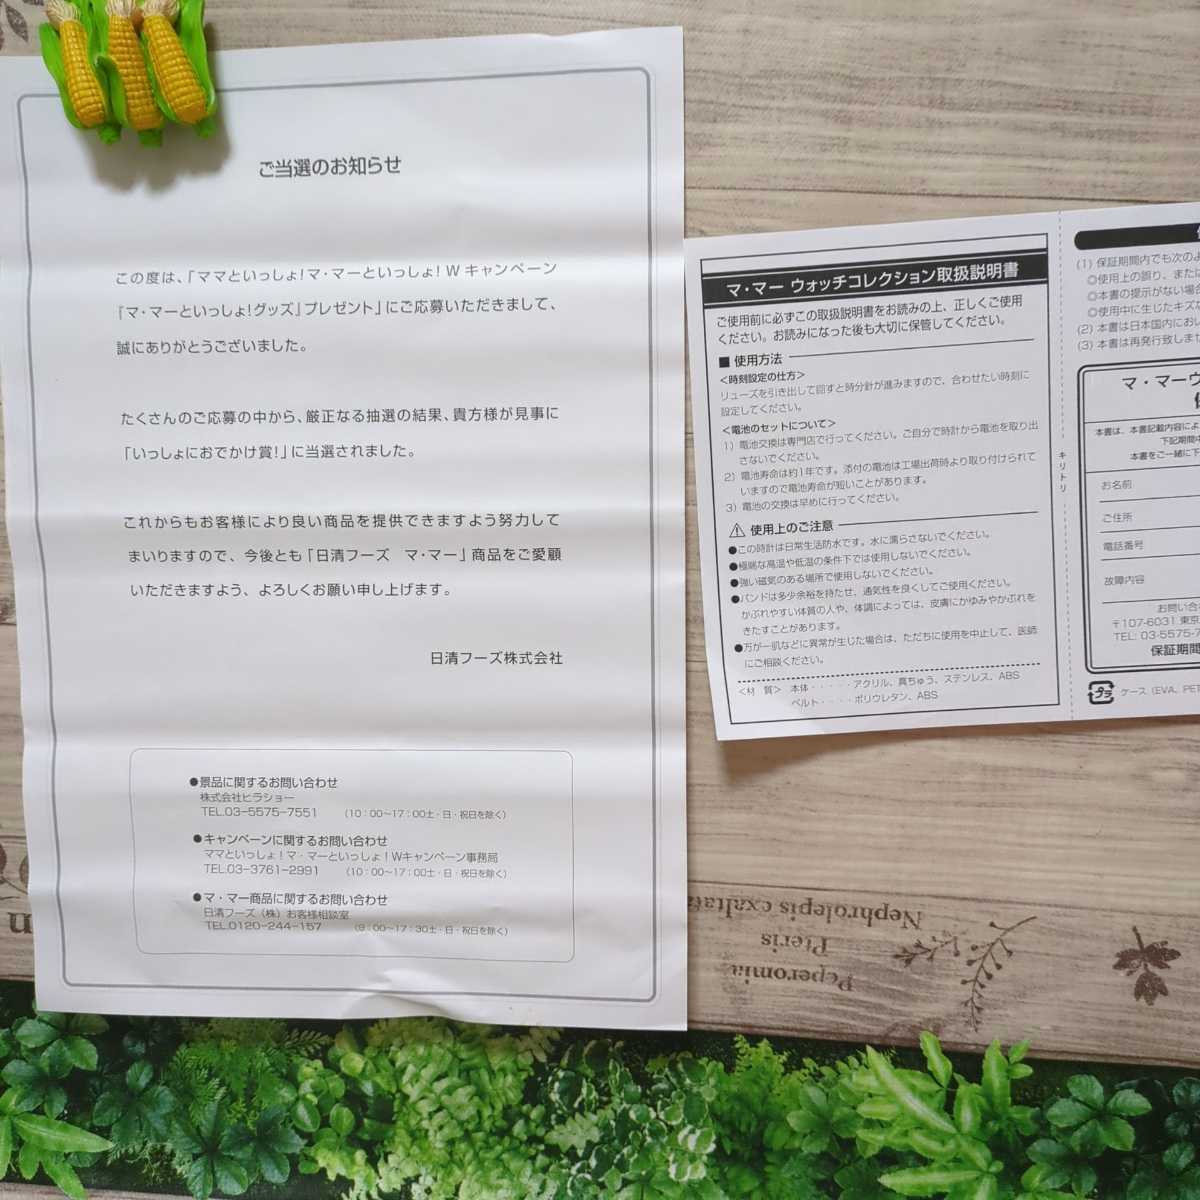 ご当選のお知らせ
この度は、「ママといっしょ!マ・マーといっしょ! Wキャンペーン
『マ・マーといっしょ!グッズ』プレゼント」にご応募いただきまして、
誠にありがとうございました。
たくさんのご応募の中から、厳正なる抽選の結果、貴方様が見事に
「いっしょにおでかけ賞!」に当選されました。
これからもお客様により良い商品を提供できますよう努力して
まいりますので、今後とも「日清フーズ マ・マー」商品をご愛顧
いただきますよう、よろしくお願い申し上げます。
日清フーズ株式会社
●景品に関するお問い合わせ
株式会社ヒラショー
TEL.03-5575-7551 (10:00~17:00土・日・祝日を除く)
●キャンペーンに関するお問い合わせ
ママといっしょ!マ・マーといっしょ!Wキャンペーン事務局
TEL.03-3761-2991 (10:00~17:00土・日・祝日を除く)
●マ・マー商品に関するお問い合わせ
日清フーズ(株)お客様相談室
TEL.0120-244-157 (9:00~17:30土・日・祝日を除く)
マ・マー ウォッチコレクション取扱説明書
ご使用前に必ずこの取扱説明書をお読みの上、正しくご使用
ください。お読みになった後も大切に保管してください。
■ 使用方法
<時刻設定の仕方>
リューズを引き出して回すと時分針が進みますので、合わせたい時刻に
設定してください。
<電池のセットについて>
1) 電池交換は専門店で行ってください。ご自分で時計から電池を取り出
さないでください。
2) 電池寿命は約1年です。添付の電池は工場出荷時より取り付けられて
いますので電池寿命が短いことがあります。
3) 電池の交換は早めに行ってください。
使用上のご注意
●この時計は日常生活防水です。水に濡らさないでください。
●極端な高温や低温の条件下では使用しないでください。
●強い磁気のある場所で使用しないでください。
●バンドは多少余裕を持たせ、通気性を良くしてご使用ください。
かぶれやすい体質の人や、体調によっては、皮膚にかゆみやかぶれを
きたすことがあります。
●万が一肌などに異常が生じた場合は、ただちに使用を中止して、医師
にご相談ください。
<材 質> 本体・・・・・アクリル、真ちゅう、ステンレス、ABS
ベルト・・・・ポリウレタン、ABS
キリトリ
(1) 保証期間内でも次のよ
◎使用上の誤り、または
◎本書の提示がない場合
◎使用中に生じたキズな
(2) 本書は日本国内におい
(3) 本書は再発行致しませ
マ・マーウ
本書は、本書記載内容によ
下記期間中
本書をご一緒に下
お名前
ご住所
電話番号
故障内容
お問い合
〒107-6031 東京
TEL: 03-5575-7
保証期間
プラ ケース (EVA、PET
Nephrolepis exaltata
Pteris
Peperomia